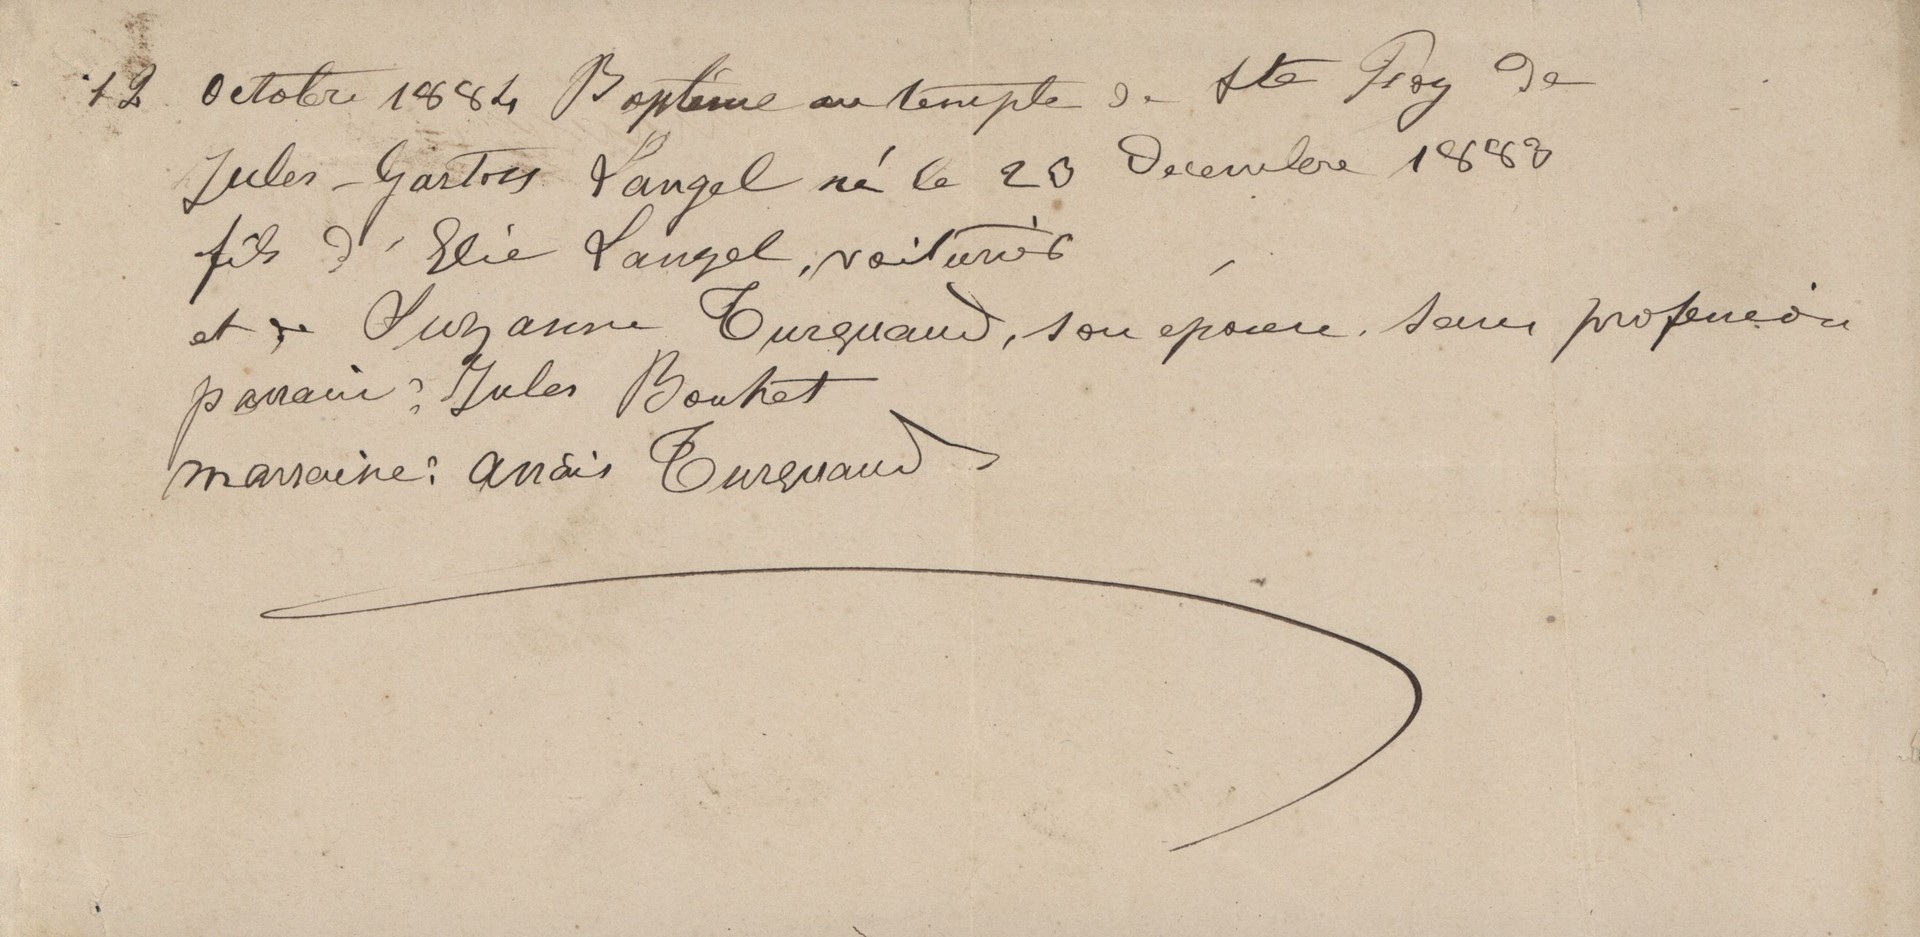 12 Octobre 1884 Baptême au temple de Ste Foy de
Jules-Gaston Langel né le 23 Decembre 1883
fils d'Elie Langel, voiturier
et de Suzanne Turquand, son épouse. sans profession
parrain: Jules Bouhet
marraine: Anaïs Turquand